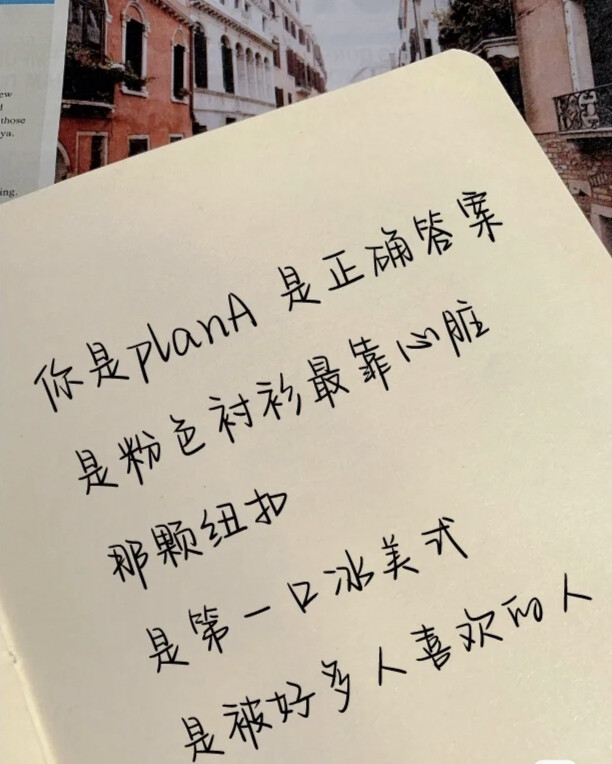 ew
those
ya.
ing.
你是planA 是正确答案
是粉色衬衫最靠心脏
那颗纽扣
是第一口冰美式
是被好多人喜欢的人